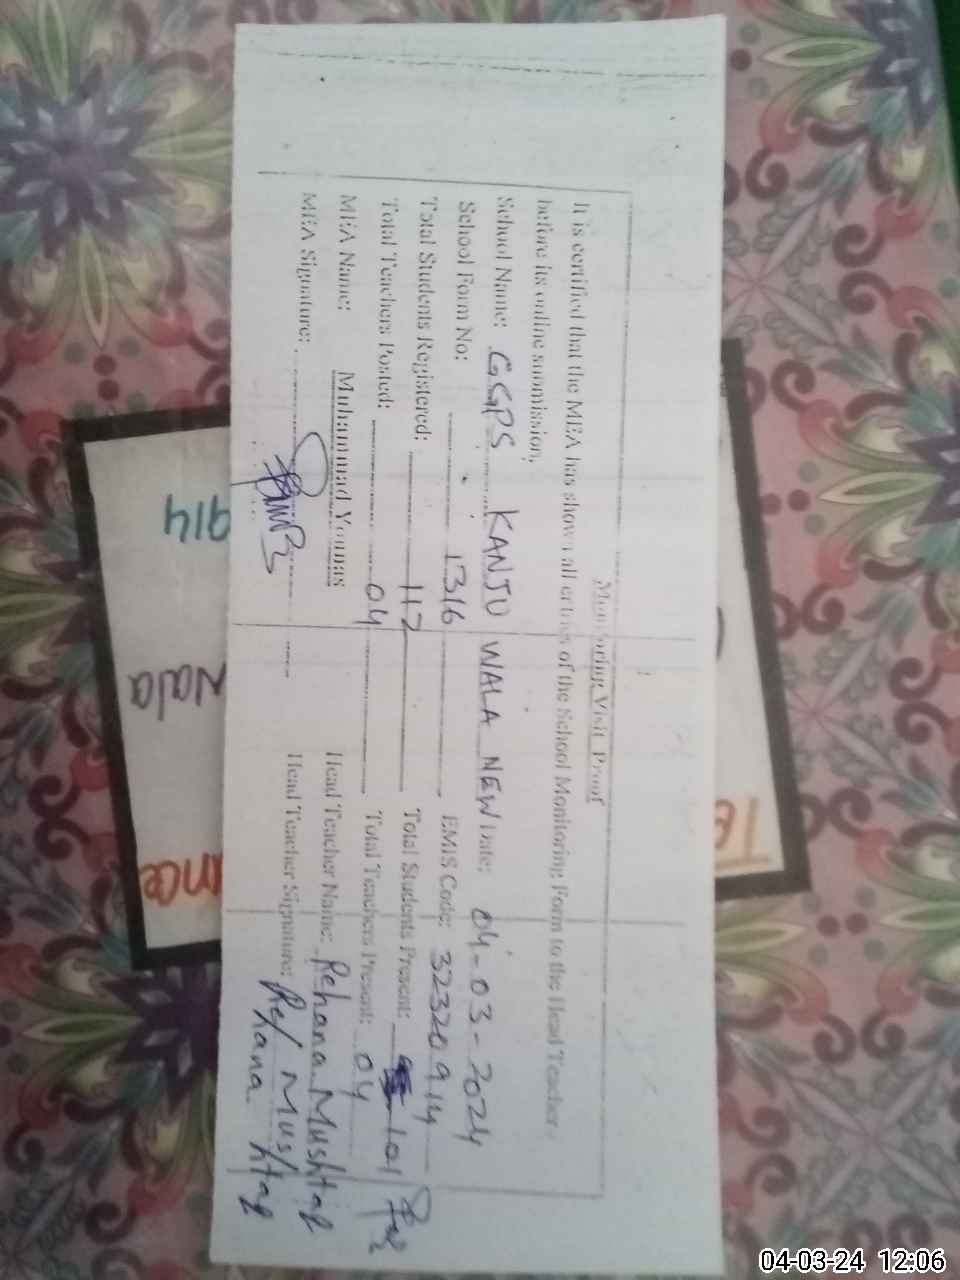 Monitoring Visit Proof
It is certified that the MEA has shown all entries of the School Monitoring Form to the Head Teacher
before its online submission,
School Name: GGPS KANJU WALA NEW Date: 04-03-2024
School Form No: 1316 EMIS Code: 32320914
Total Students Registered: 112 Total Students Present: 101
Total Teachers Posted: 04 Total Teachers Present: 04
MEA Name: Muhammad Younas Head Teacher Name: Rehana Mushtaq
MEA Signature: Head Teacher Signature: Rehana Mushtaq
914
Wala
04-03-24 12:06